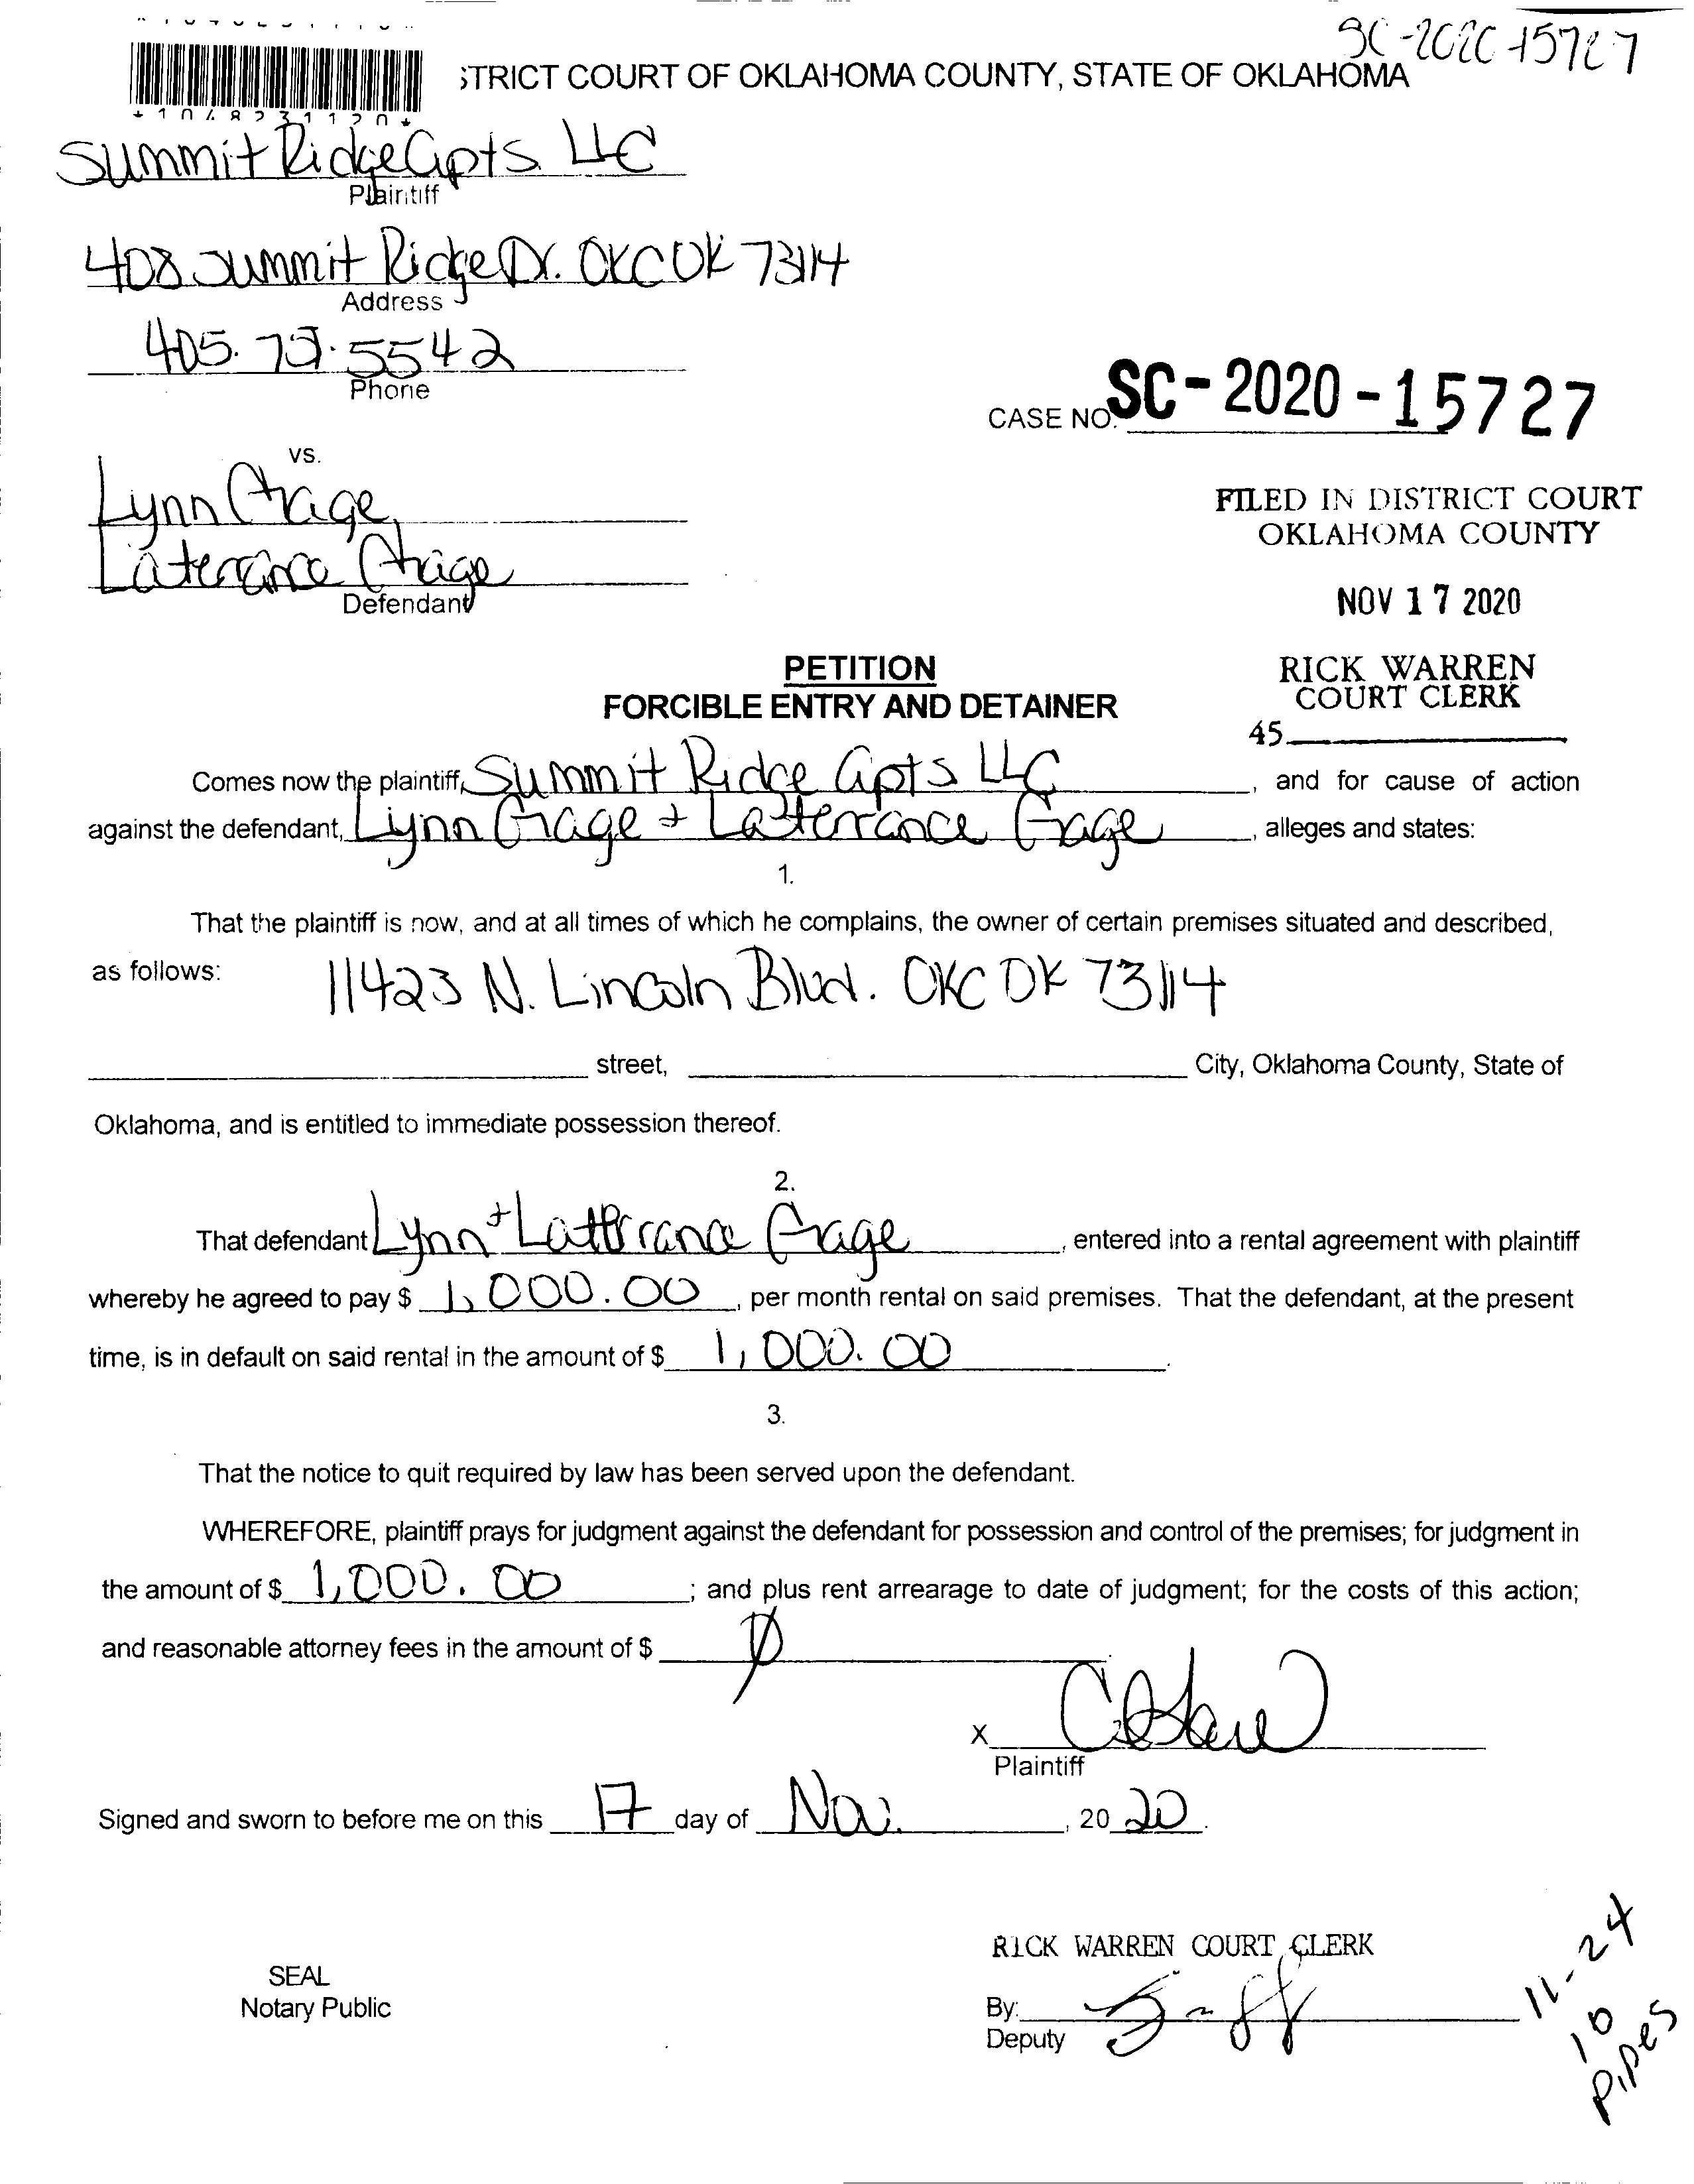 SC-2020-15727
STRICT COURT OF OKLAHOMA COUNTY, STATE OF OKLAHOMA
Summit Ridge Apts. LLC
Plaintiff
408 Summit Ridge Dr. OKC OK 73114
Address
405. 5542
Phone
CASE NO. SC-2020-15727
vs.
Lynn Gage,
Laterrance Gage
Defendant
FILED IN DISTRICT COURT
OKLAHOMA COUNTY
NOV 17 2020
RICK WARREN
COURT CLERK
45
PETITION
FORCIBLE ENTRY AND DETAINER
Comes now the plaintiff, Summit Ridge Apts LLC, and for cause of action
against the defendant, Lynn Gage + Laterrance Gage, alleges and states:
1.
That the plaintiff is now, and at all times of which he complains, the owner of certain premises situated and described,
as follows: 11423 N. Lincoln Blvd. OKC OK 73114
street, City, Oklahoma County, State of
Oklahoma, and is entitled to immediate possession thereof.
2.
That defendant Lynn + Latterrance Gage, entered into a rental agreement with plaintiff
whereby he agreed to pay $ 1,000.00, per month rental on said premises. That the defendant, at the present
time, is in default on said rental in the amount of $ 1,000.00.
3.
That the notice to quit required by law has been served upon the defendant.
WHEREFORE, plaintiff prays for judgment against the defendant for possession and control of the premises; for judgment in
the amount of $ 1,000.00; and plus rent arrearage to date of judgment; for the costs of this action;
and reasonable attorney fees in the amount of $ Ø.
X
Plaintiff
Signed and sworn to before me on this 17 day of Nov., 20 20.
RICK WARREN COURT CLERK
SEAL
Notary Public
By:
Deputy
11-24
10
Pipes